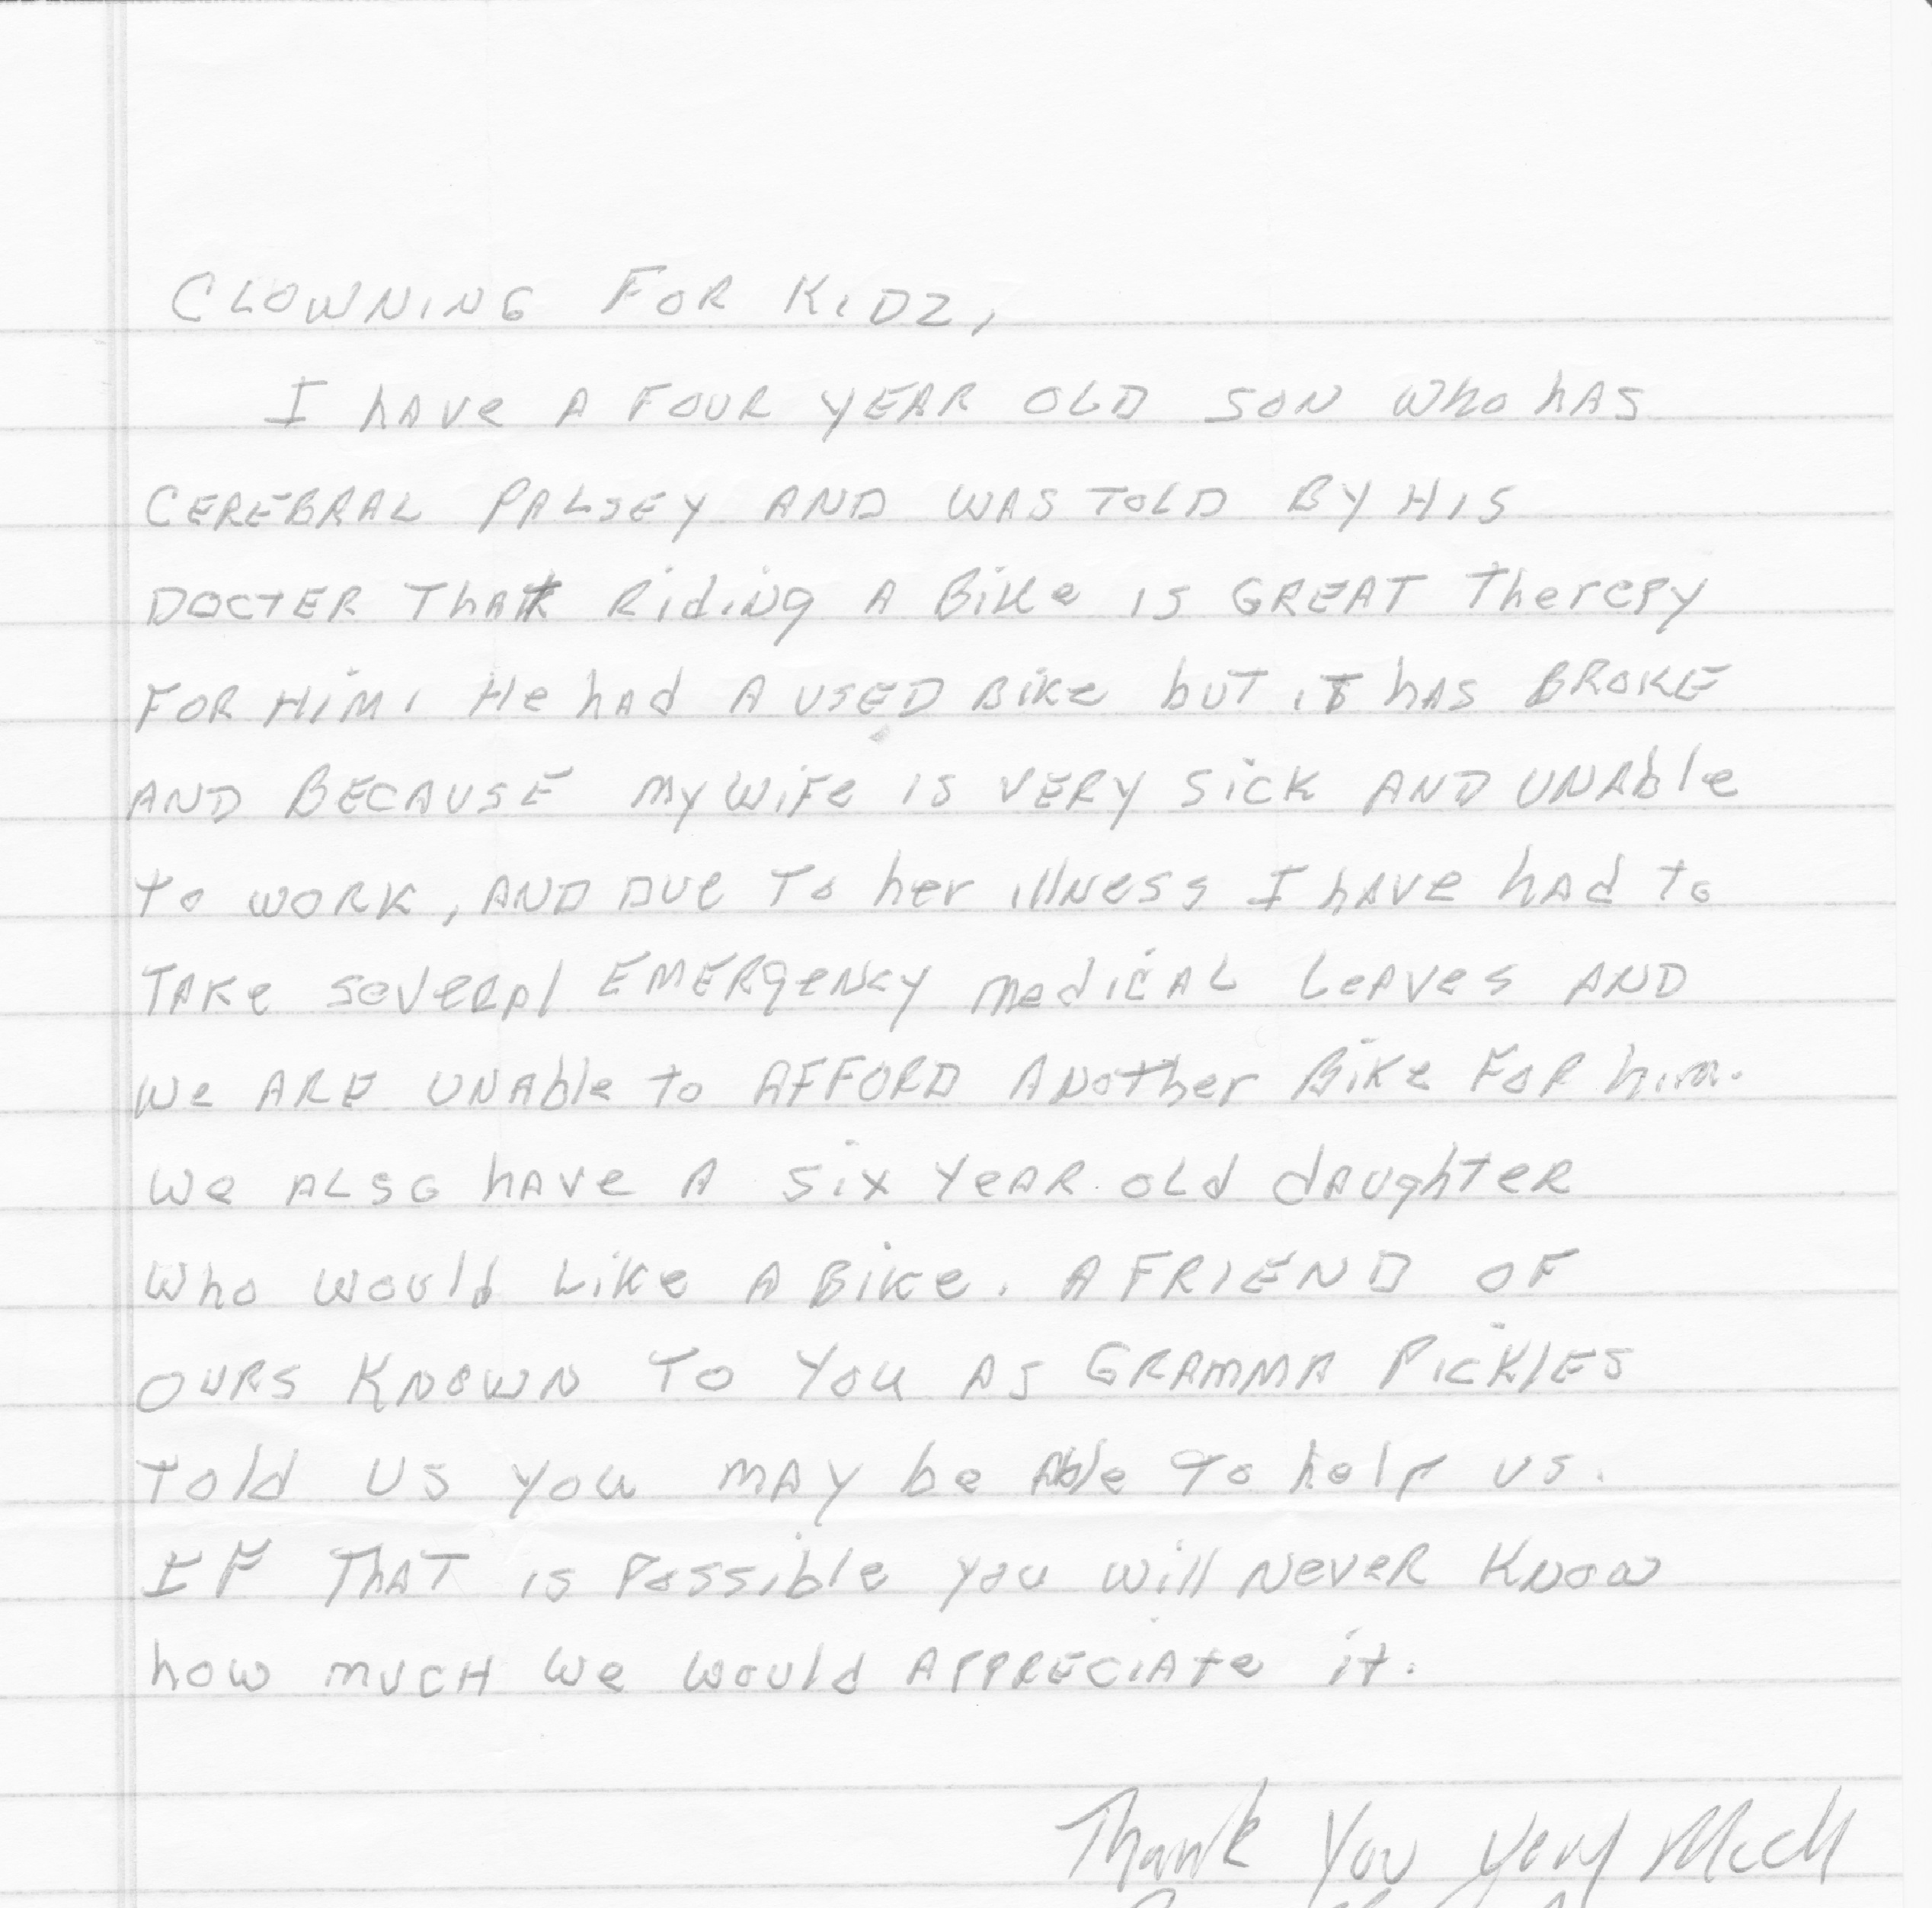 CLOWNING FOR KIDZ,
I hAVe A FOUR YEAR OLD SON Who hAS
CEREBRAL PALSEY AND WAS TOLD BY HIS
DOCTER ThAt RidiNg A BiKe IS GREAT TherePY
FOR HiM. He hAd A USED BiKe buT iT hAS BROKE
AND BECAUSE MY WiFe IS VERY SiCK AND UNAble
To WORK, AND DUe To her illNess I hAVe hAd to
TAKe SeveRAl EMERgeNcY MediCAL LeAVes AND
We ARE UNAble to AFFORD ANother BiKe FOR him.
We ALSO hAVe A Six YeAR OLd dAughTeR
Who Would LiKe A BiKe. A FRIEND OF
OURS KNOWN TO YOU AS GRAMMA PiCKlES
Told US You MAY be Able To help US.
IF ThAT is PossibLe You Will NeVeR KNow
how MUCH We Would APPRECiAte it.
Thank You Very MucH